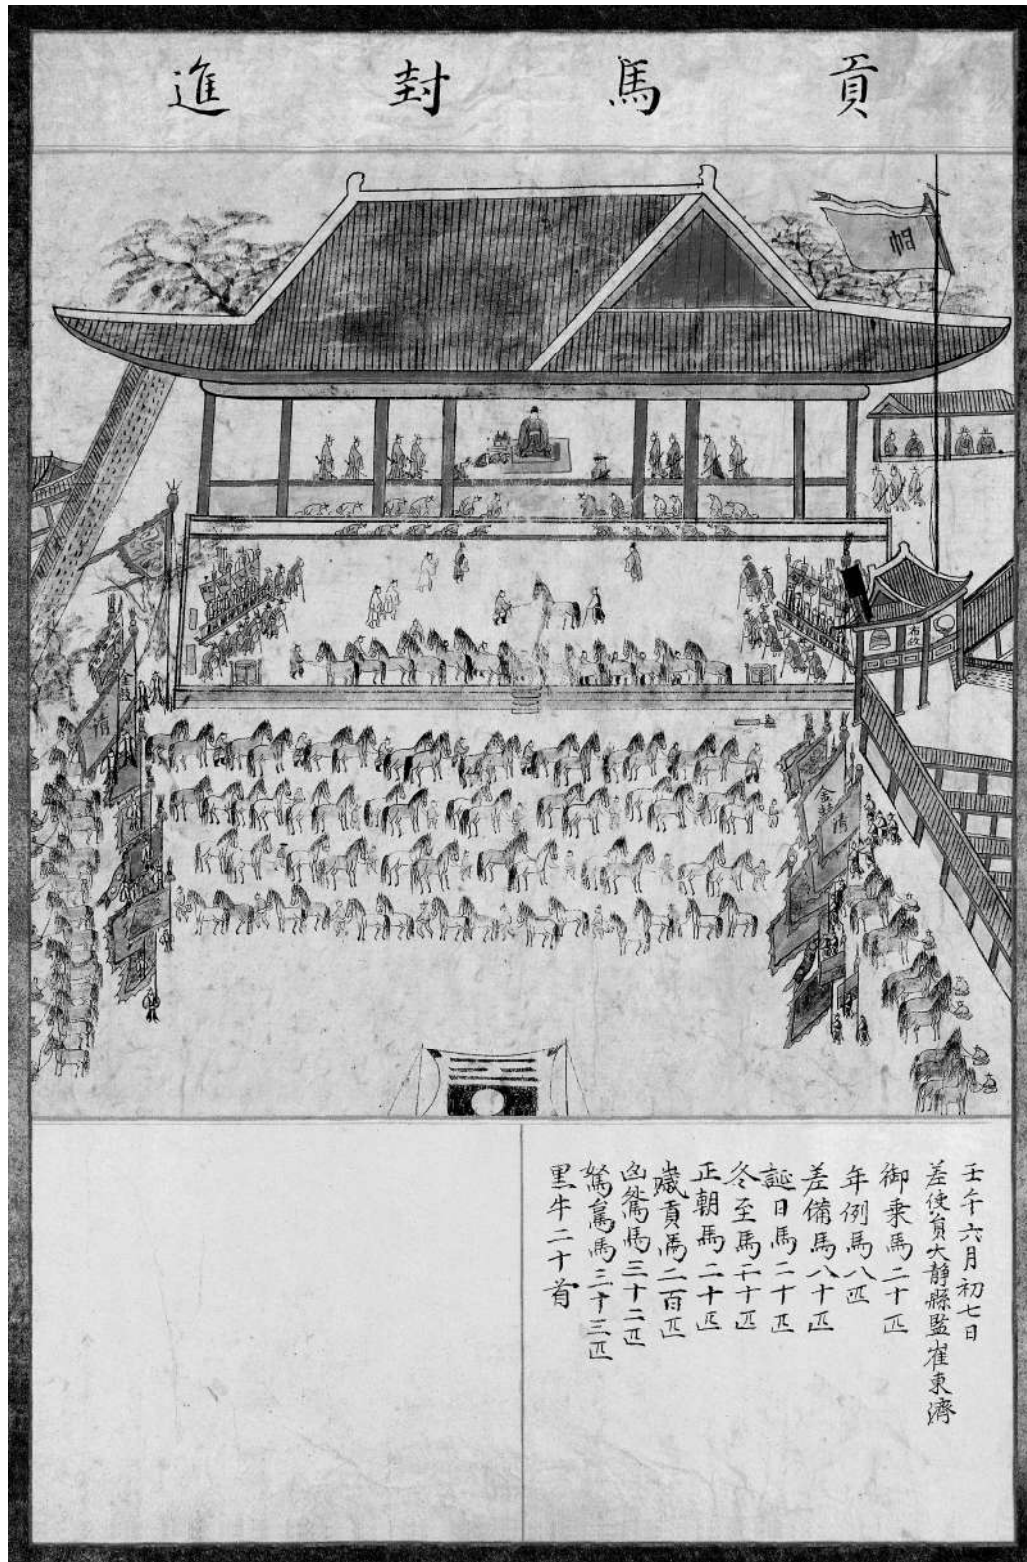 貢馬封進
帥
壬午六月初七日
差使員大靜縣監崔東濟
御乗馬二十匹
年例馬八匹
差備馬八十匹
誕日馬二十匹
冬至馬二十匹
正朝馬二十匹
歲貢馬二百匹
凶咎馬三十二匹
駑駘馬三十三匹
黑牛二十首